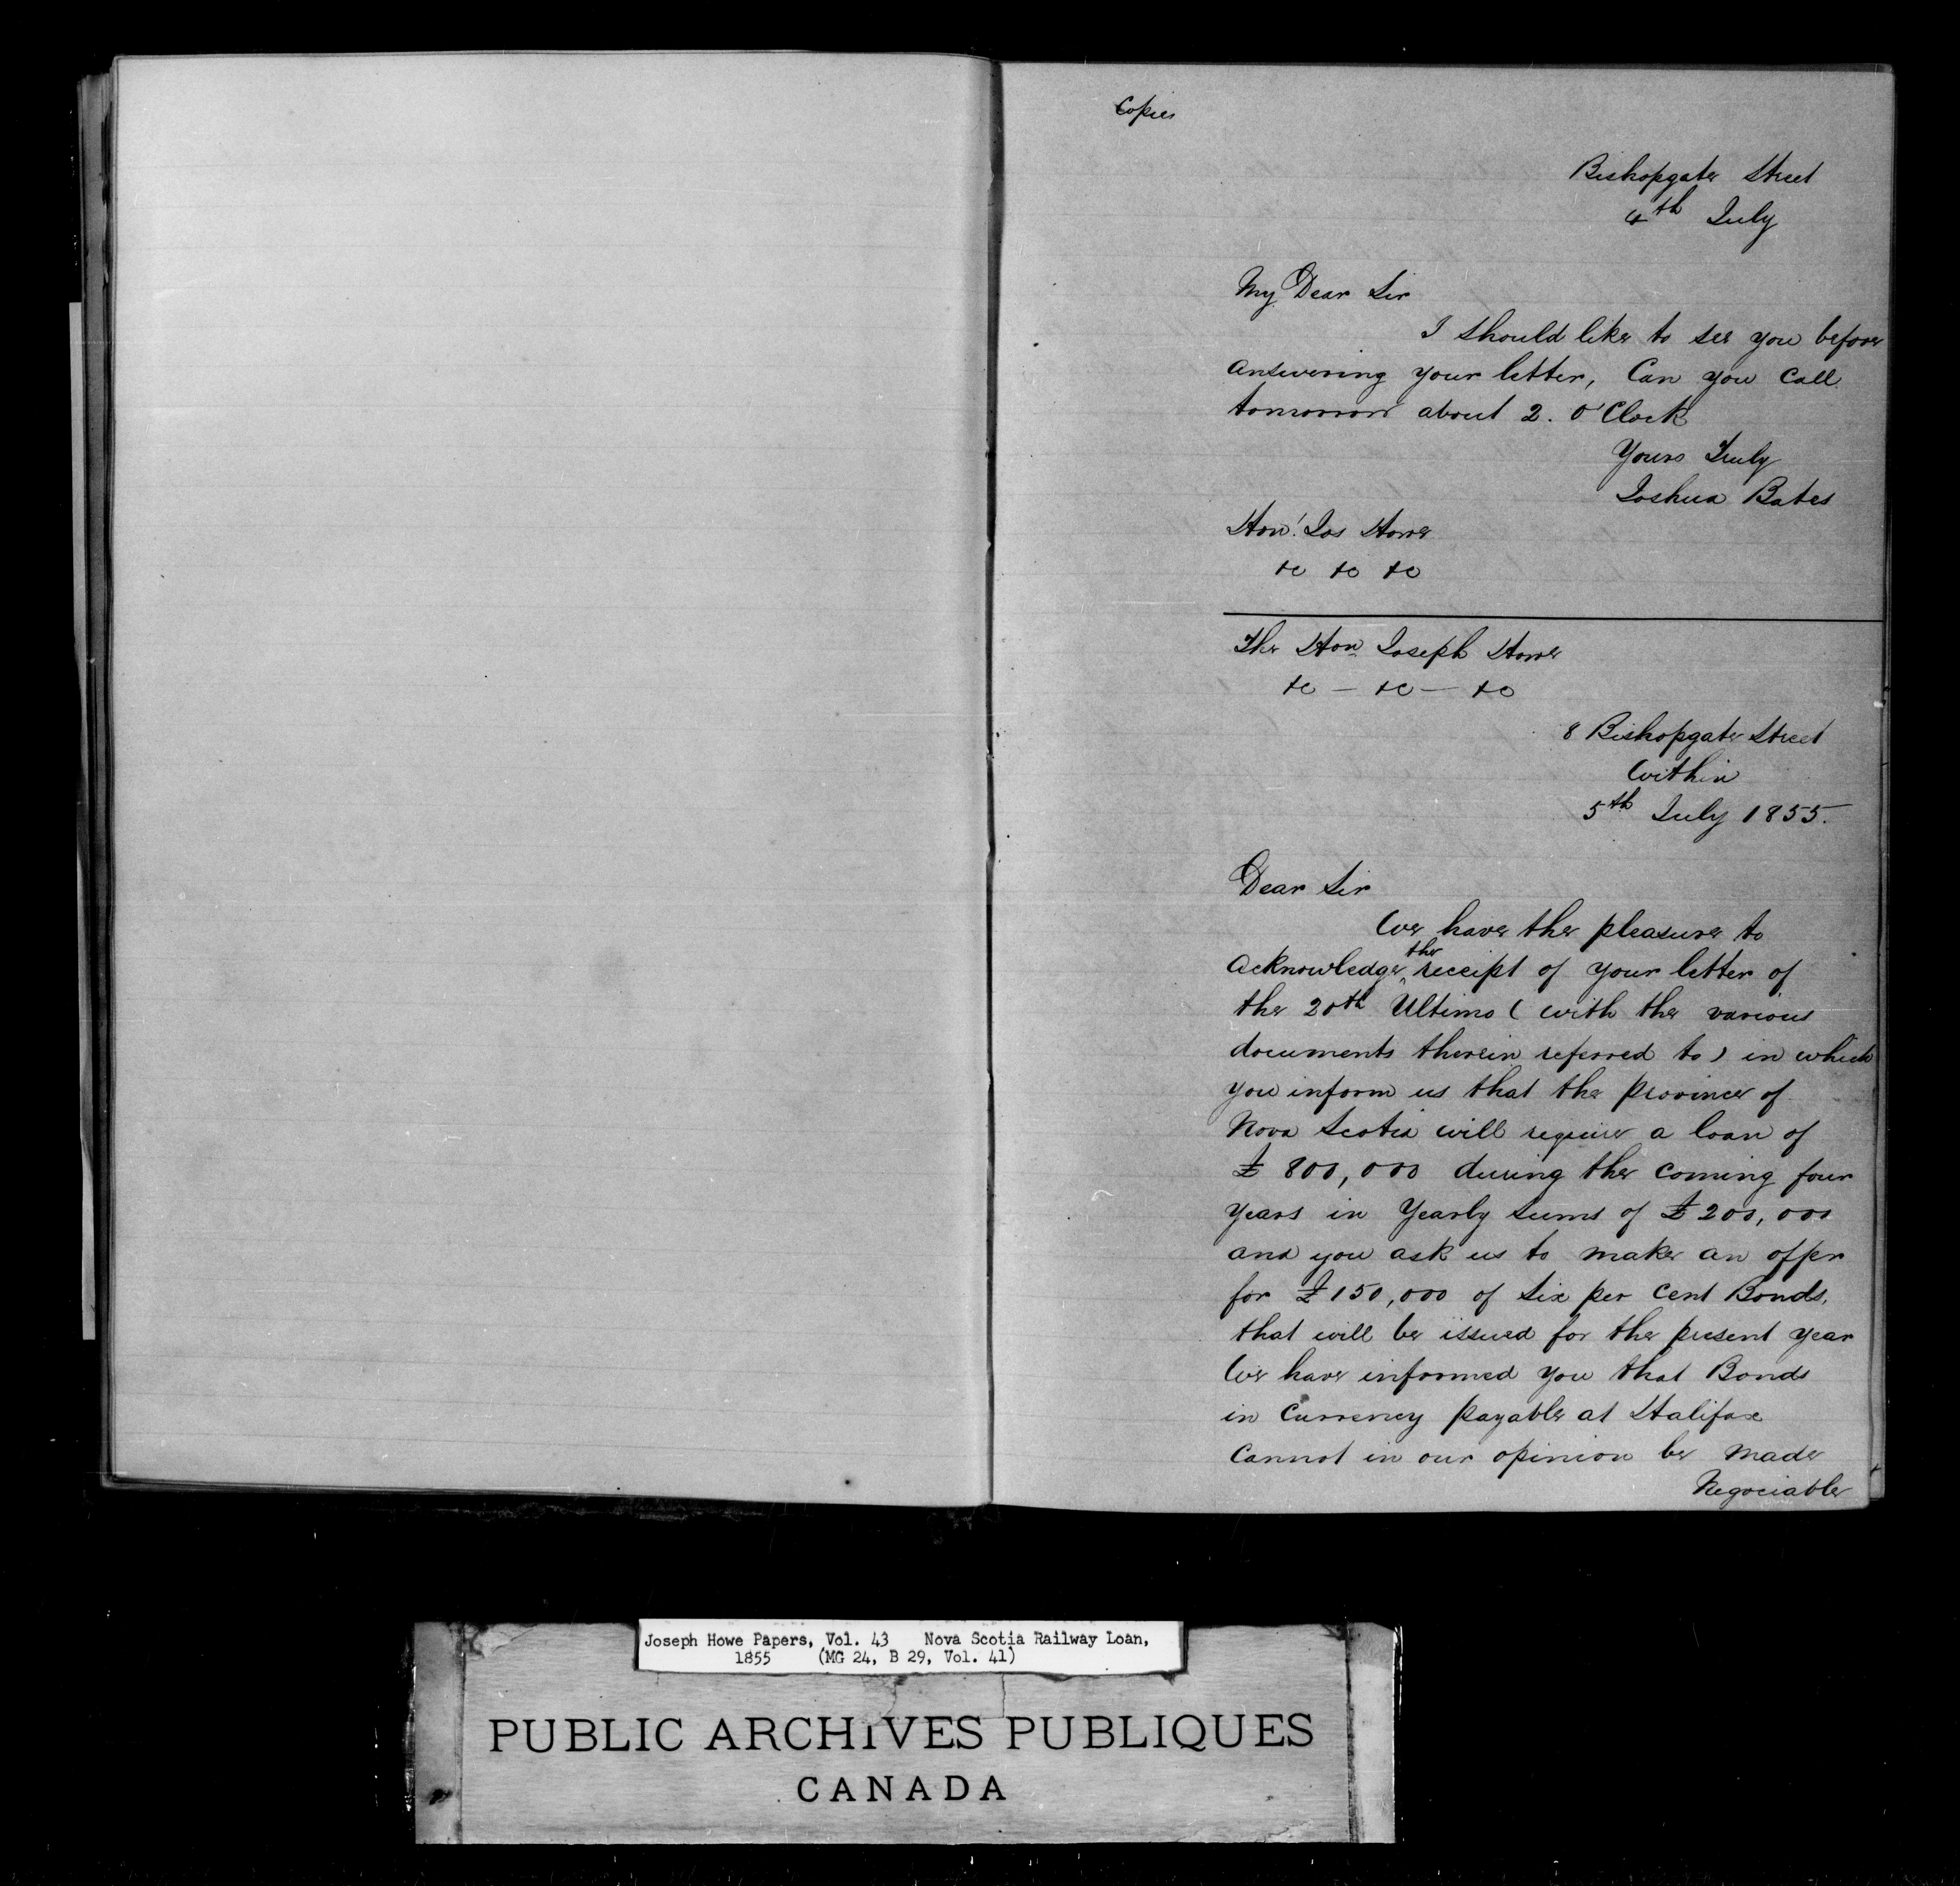 Copies
Bishopgate Street
4th July
My Dear Sir
I should like to see you before
answering your letter, Can you Call
tomorrow about 2. O'Clock
Yours Truly
Joshua Bates
Hon! Jos Howe
&c &c &c
The Hon Joseph Howe
&c — &c — &c
8 Bishopgate Street
Within
5th July 1855.
Dear Sir
We have the pleasure to
acknowledge the receipt of your letter of
the 20th Ultimo ( with the various
documents therein referred to ) in which
you inform us that the province of
Nova Scotia will require a loan of
£ 800,000 during the coming four
years in Yearly sums of £200,000
and you ask us to make an offer
for £150,000 of Six per Cent Bonds,
that will be issued for the present year
We have informed you that Bonds
in Currency payable at Halifax
Cannot in our opinion be made
Negociable
Joseph Howe Papers, Vol. 43 Nova Scotia Railway Loan,
1855 (MG 24, B 29, Vol. 41)
PUBLIC ARCHIVES PUBLIQUES
CANADA